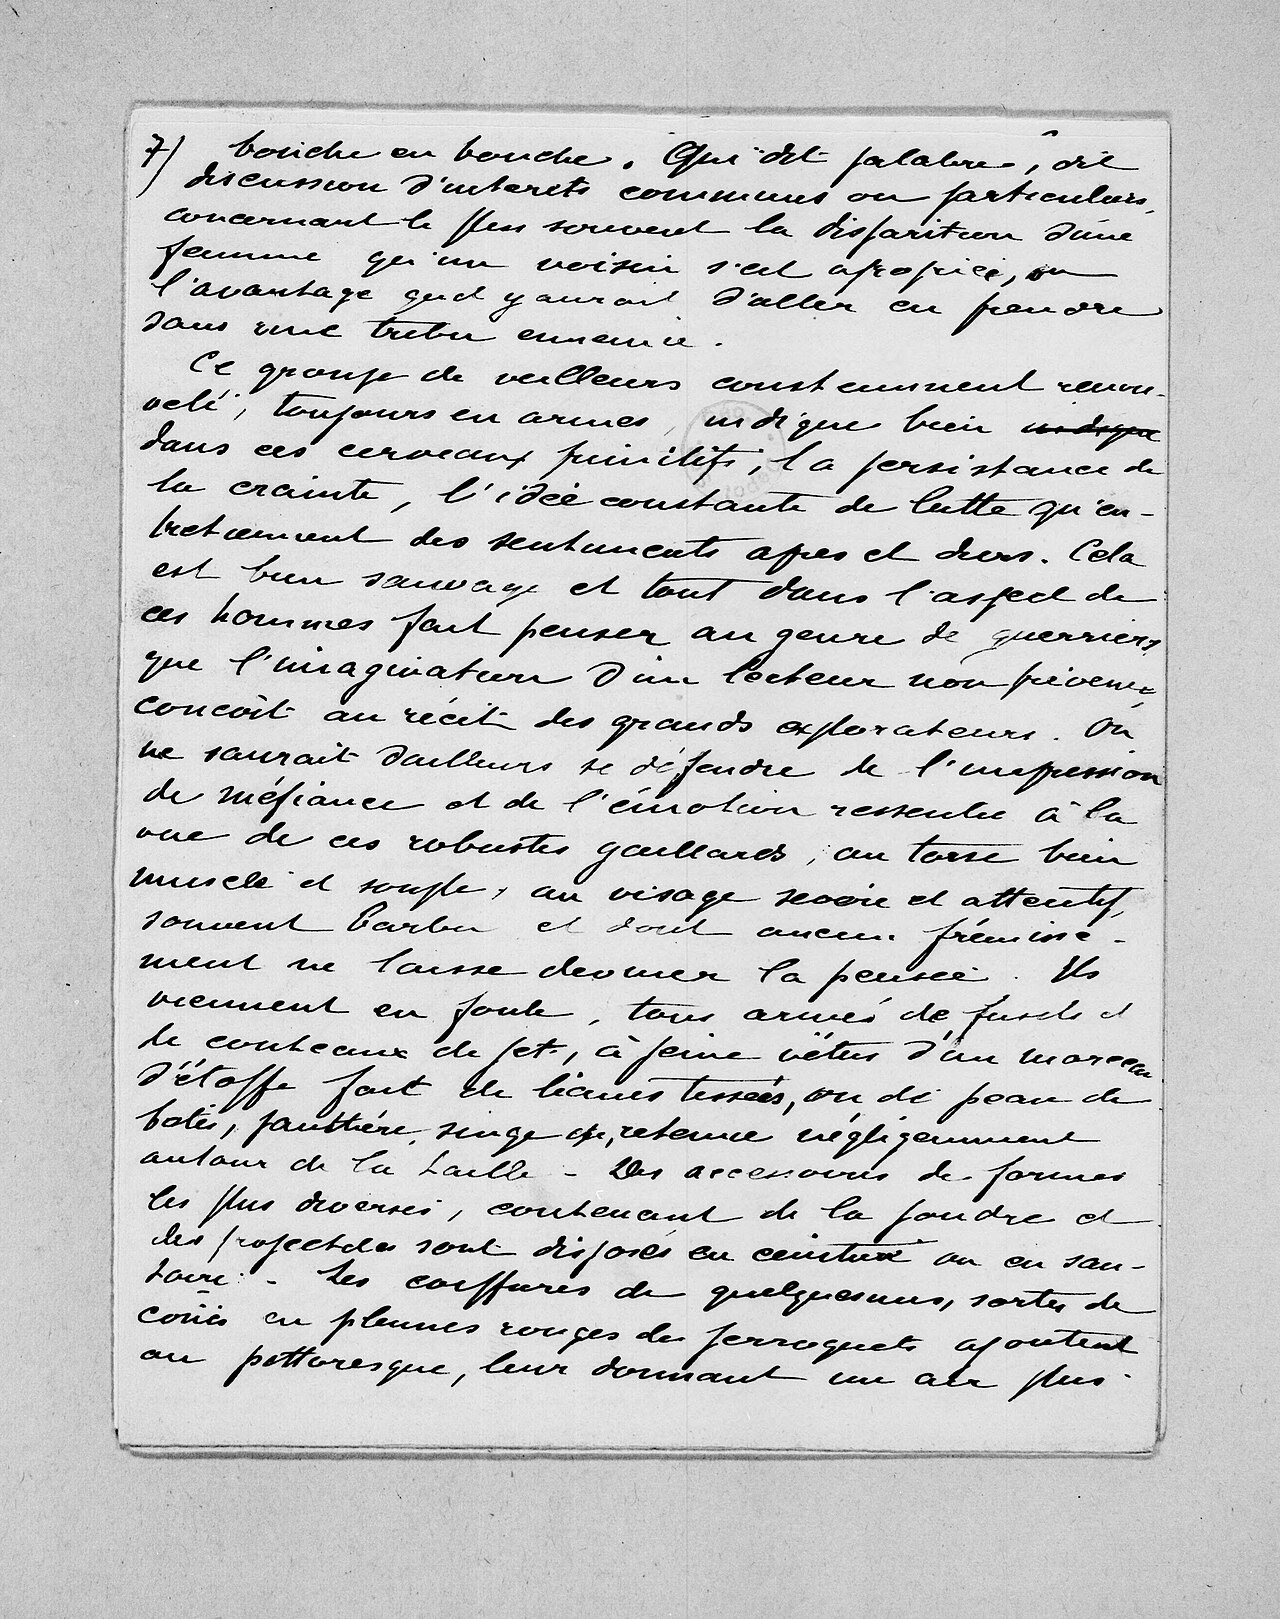 7) bouche en bouche. Qui dit palabre, dit
discussion d'interets communs ou particuliers,
concernant le plus souvent la disparition d'une
femme qu'un voisin s'est apropriée, ou
l'avantage qu'il y aurait d'aller en prendre
dans une tribu ennemie.
Ce groupe de veilleurs constemment renou-
velé, toujours en armes, indique bien indique
dans ces cerveaux primitifs, la persistance de
la crainte, l'idée constante de lutte qu'en-
tretiennent des sentiments apres et durs. Cela
est bien sauvage et tout dans l'aspect de
ces hommes fait penser au genre de guerriers
que l'imagination d'un lecteur non prévenu,
conçoit au récit des grands explorateurs. On
ne saurait d'ailleurs se défendre de l'impression
de méfiance et de l'émotion ressentie à la
vue de ces robustes gaillards, au torse bien
musclé et souple, au visage sévère et attentif,
souvent barbu et dont aucun frémisse-
ment ne laisse deviner la pensée. Ils
viennent en foule, tous armés de fusils et
de couteaux de jet, à peine vêtus d'un morceau
d'étoffe fait de lianes tissées, ou de peau de
botes, panthère, singe retenue négligemment
autour de la taille - Des accessoires de formes
les plus diverses, contenant de la poudre et
des projectiles sont disposés en ceinture ou en sau-
toire. - Les coiffures de quelquesuns, sortes de
en plumes rouges de perroquets ajoutent
au pittoresque, leur donnant un air plus